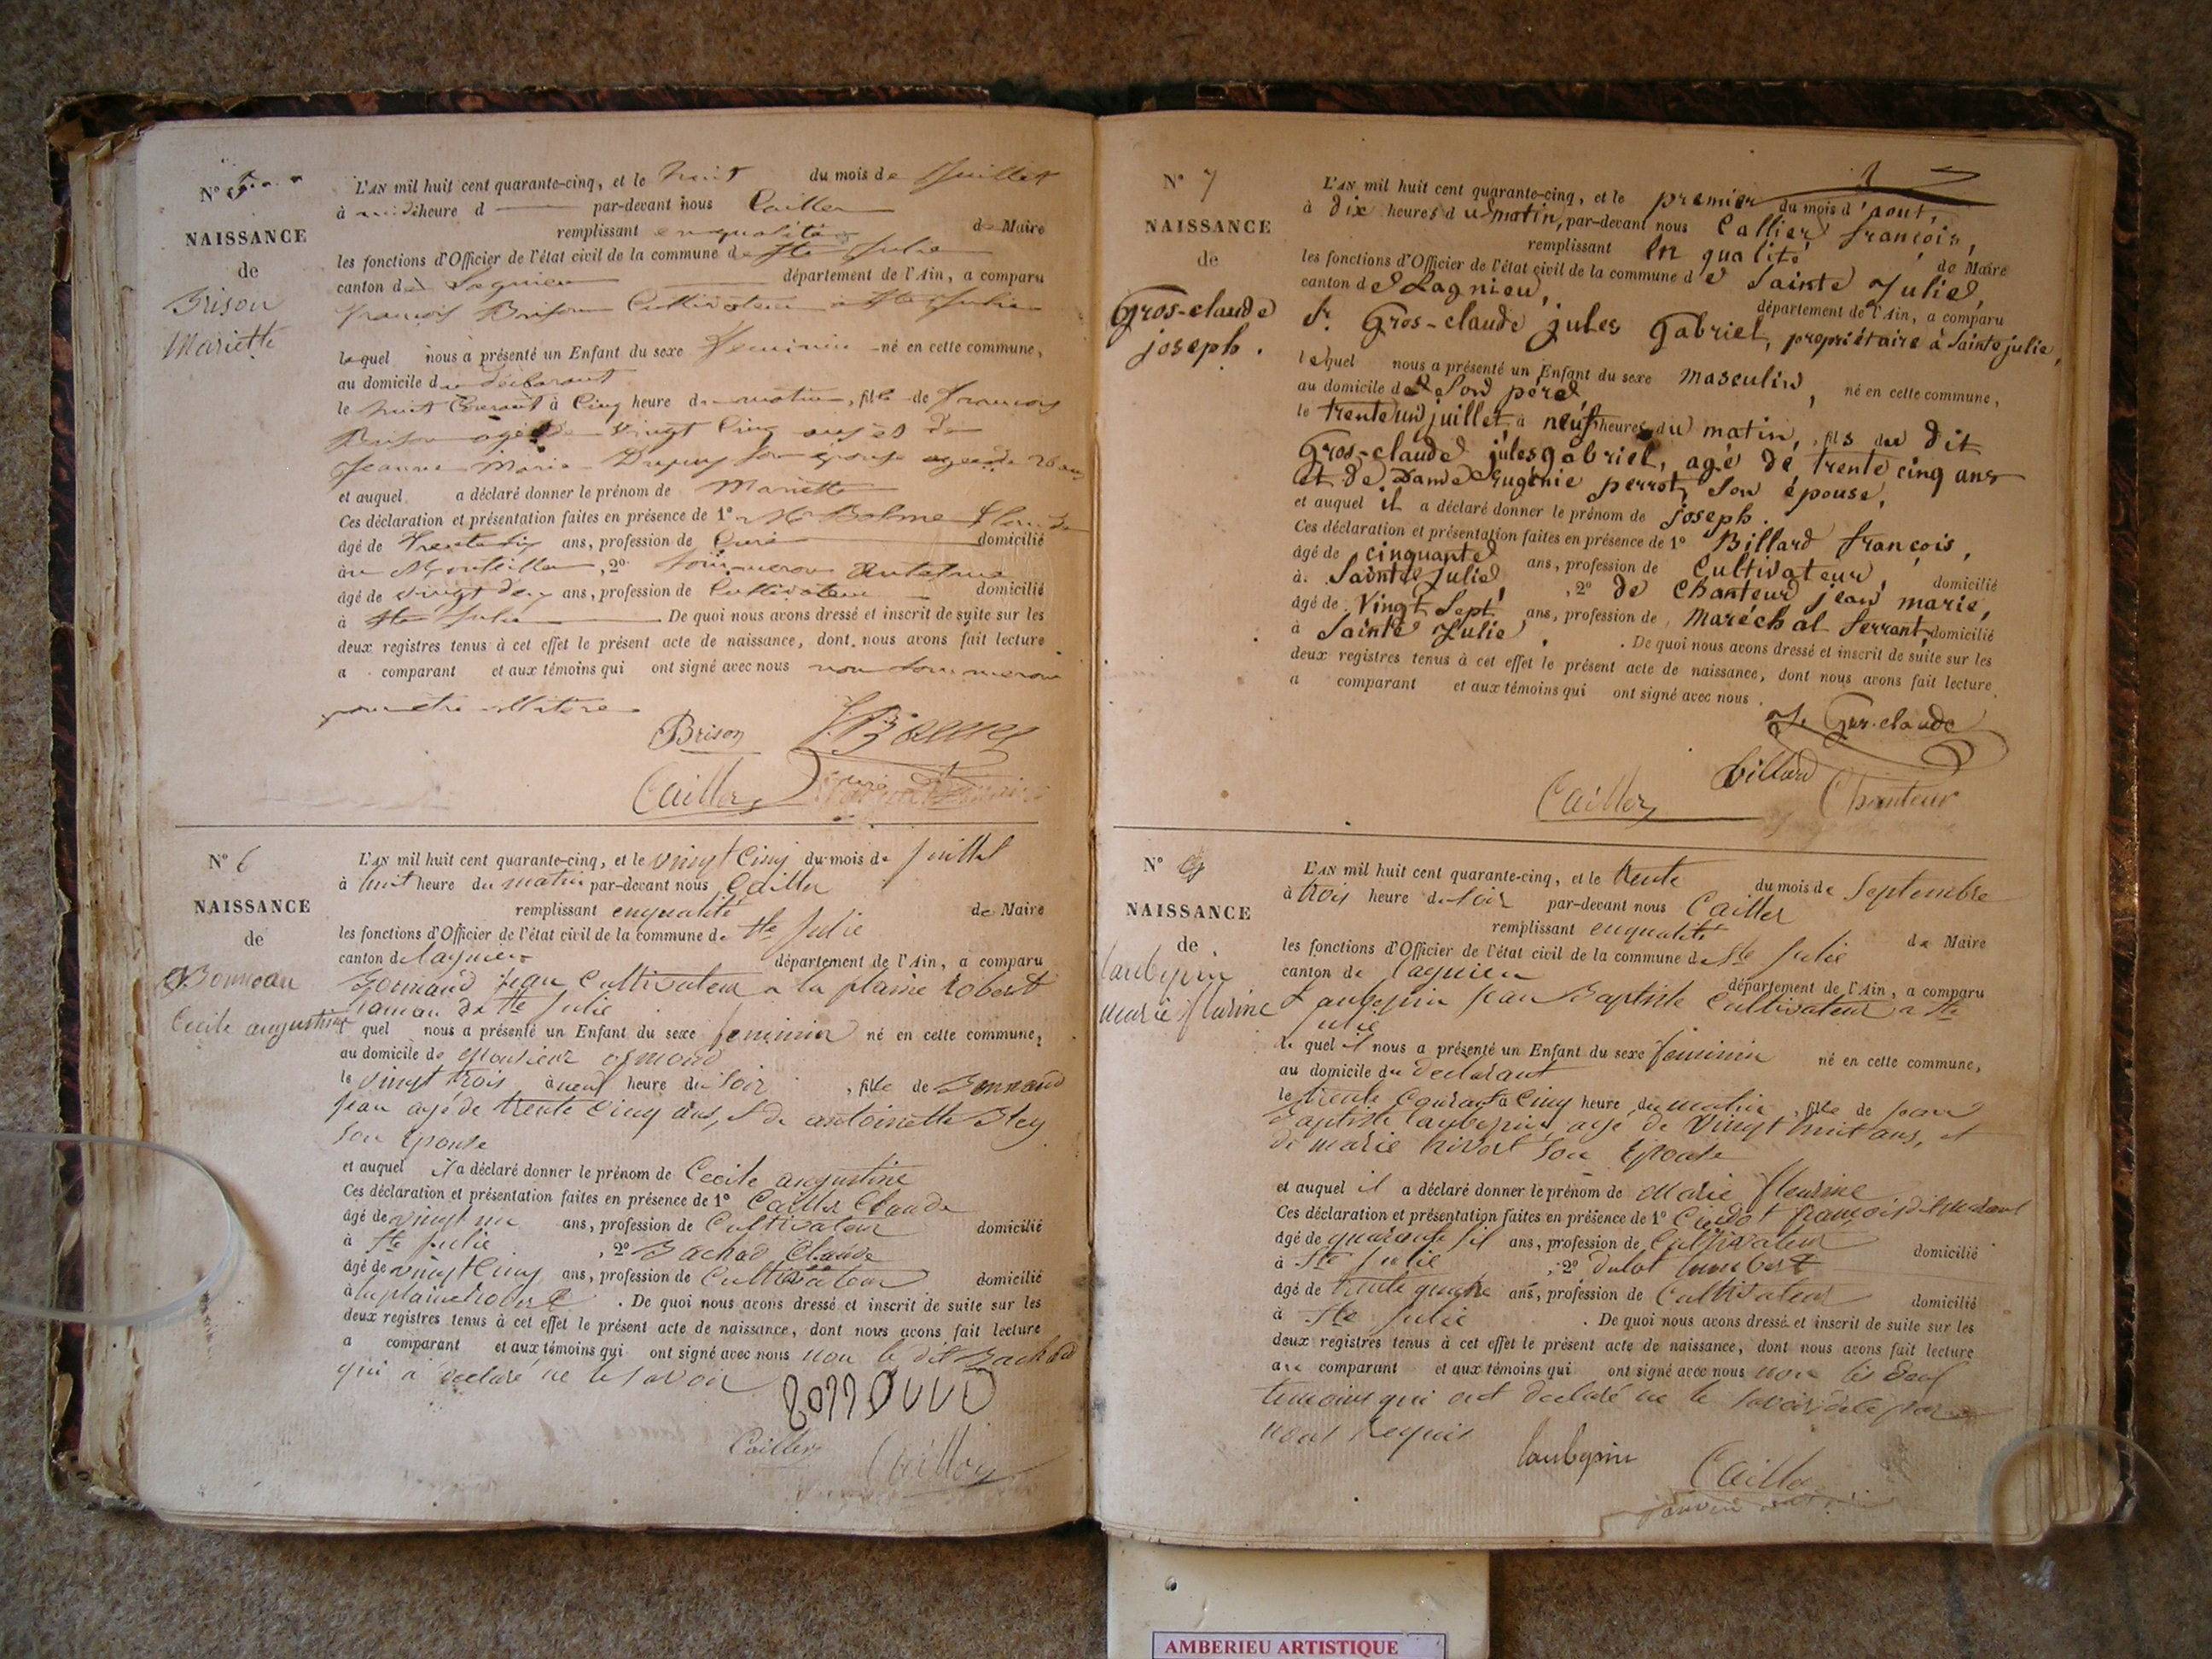 N° 5
NAISSANCE
de
Brison
Mariette
L'AN mil huit cent quarante-cinq, et le huit du mois de Juillet
à midi heure d par-devant nous Cailler
remplissant en qualité de Maire
les fonctions d'Officier de l'état civil de la commune de Ste Julie
canton de Lagnieu département de l'Ain, a comparu
François Brison Cultivateur à Ste Julie
lequel nous a présenté un Enfant du sexe Feminin né en cette commune,
au domicile du déclarant
le huit Courant à Cinq heure du matin, fille de François
Brison agé de vingt Cinq ans et de
Jeanne Marie Dupuy son épouse agée de 26 ans
et auquel a déclaré donner le prénom de Mariette
Ces déclaration et présentation faites en présence de 1° Mr Bolme
âgé de trente six ans, profession de Curé domicilié
au , 2° Sommeron Antelme
âgé de vingt deux ans, profession de Cultivateur domicilié
à Ste Julie De quoi nous avons dressé et inscrit de suite sur les
deux registres tenus à cet effet le présent acte de naissance, dont nous avons fait lecture
a comparant et aux témoins qui ont signé avec nous non Sommeron
pour être illitéré
Brison
Cailler curé
N° 6
NAISSANCE
de
Bonneau
Cecile augustine
L'AN mil huit cent quarante-cinq, et le vingt Cinq du mois de Juillet
à huit heure du matin par-devant nous Cailler
remplissant enqualité de Maire
les fonctions d'Officier de l'état civil de la commune de Ste Julie
canton de lagnieu département de l'Ain, a comparu
Bonnand Jean Cultivateur a la plaine Robert
hameau de Ste Julie
l quel nous a présenté un Enfant du sexe feminin né en cette commune,
au domicile de Monsieur
le vingt trois à neuf heure du soir, fille de Bonnand
Jean agé de trente Cinq ans, & de antoinette Bley
son Epouse
et auquel il a déclaré donner le prénom de Cecile augustine
Ces déclaration et présentation faites en présence de 1° Cailler Claude
âgé de vingt un ans, profession de Cultivateur domicilié
à Ste Julie, 2° Bachod Claude
âgé de vingt Cinq ans, profession de Cultivateur domicilié
à la plaine Robert. De quoi nous avons dressé et inscrit de suite sur les
deux registres tenus à cet effet le présent acte de naissance, dont nous avons fait lecture
a comparant et aux témoins qui ont signé avec nous non le dit Bachod
qui a declaré ne le savoir
Cailler Cailler
N° 7
NAISSANCE
de
Gros-claude
joseph.
L'AN mil huit cent quarante-cinq, et le premier du mois d'aout,
à dix heures du matin, par-devant nous Callier françois,
remplissant en qualité de Maire
les fonctions d'Officier de l'état civil de la commune de Sainte Julie,
canton de Lagnieu, département de l'Ain, a comparu
Sr. Gros-claude jules Gabriel, propriétaire à Sainte julie,
lequel nous a présenté un Enfant du sexe masculin, né en cette commune,
au domicile de Son père,
le trente un juillet à neuf heures du matin, fils du dit
Gros-claude jules gabriel, agé de trente cinq ans
et de Dame Eugénie perrot, Son épouse,
et auquel il a déclaré donner le prénom de joseph.
Ces déclaration et présentation faites en présence de 1° Billard françois,
âgé de cinquante ans, profession de Cultivateur, domicilié
à Sainte Julie, 2° de Chanteur jean marie,
âgé de Vingt Sept ans, profession de Maréchal ferrant, domicilié
à Sainte Julie. De quoi nous avons dressé et inscrit de suite sur les
deux registres tenus à cet effet le présent acte de naissance, dont nous avons fait lecture
a comparant et aux témoins qui ont signé avec nous.
billard
Cailler Chanteur
N° 8
NAISSANCE
de
laubepin
marie fleurine
L'AN mil huit cent quarante-cinq, et le trente du mois de Septembre
à trois heure du soir par-devant nous Cailler
remplissant enqualité de Maire
les fonctions d'Officier de l'état civil de la commune de Ste Julie
canton de lagnieu département de l'Ain, a comparu
Laubepin Jean Baptiste Cultivateur a Ste
Julie
le quel il nous a présenté un Enfant du sexe feminin né en cette commune,
au domicile du declarant
le trente Courant à Cinq heure du matin, fille de jean
Baptiste laubepin, agé de Vingt huit ans, et
de marie son Epouse
et auquel il a déclaré donner le prénom de Marie fleurine
Ces déclaration et présentation faites en présence de 1° françois
âgé de ans, profession de Cultivateur domicilié
à Ste Julie, 2° humbert
âgé de trente quatre ans, profession de Cultivateur domicilié
à Ste Julie. De quoi nous avons dressé et inscrit de suite sur les
deux registres tenus à cet effet le présent acte de naissance, dont nous avons fait lecture
au comparant et aux témoins qui ont signé avec nous non les deux
temoins qui ont declaré ne le savoir de ce par
nous Requis
laubepin Cailler
AMBERIEU ARTISTIQUE